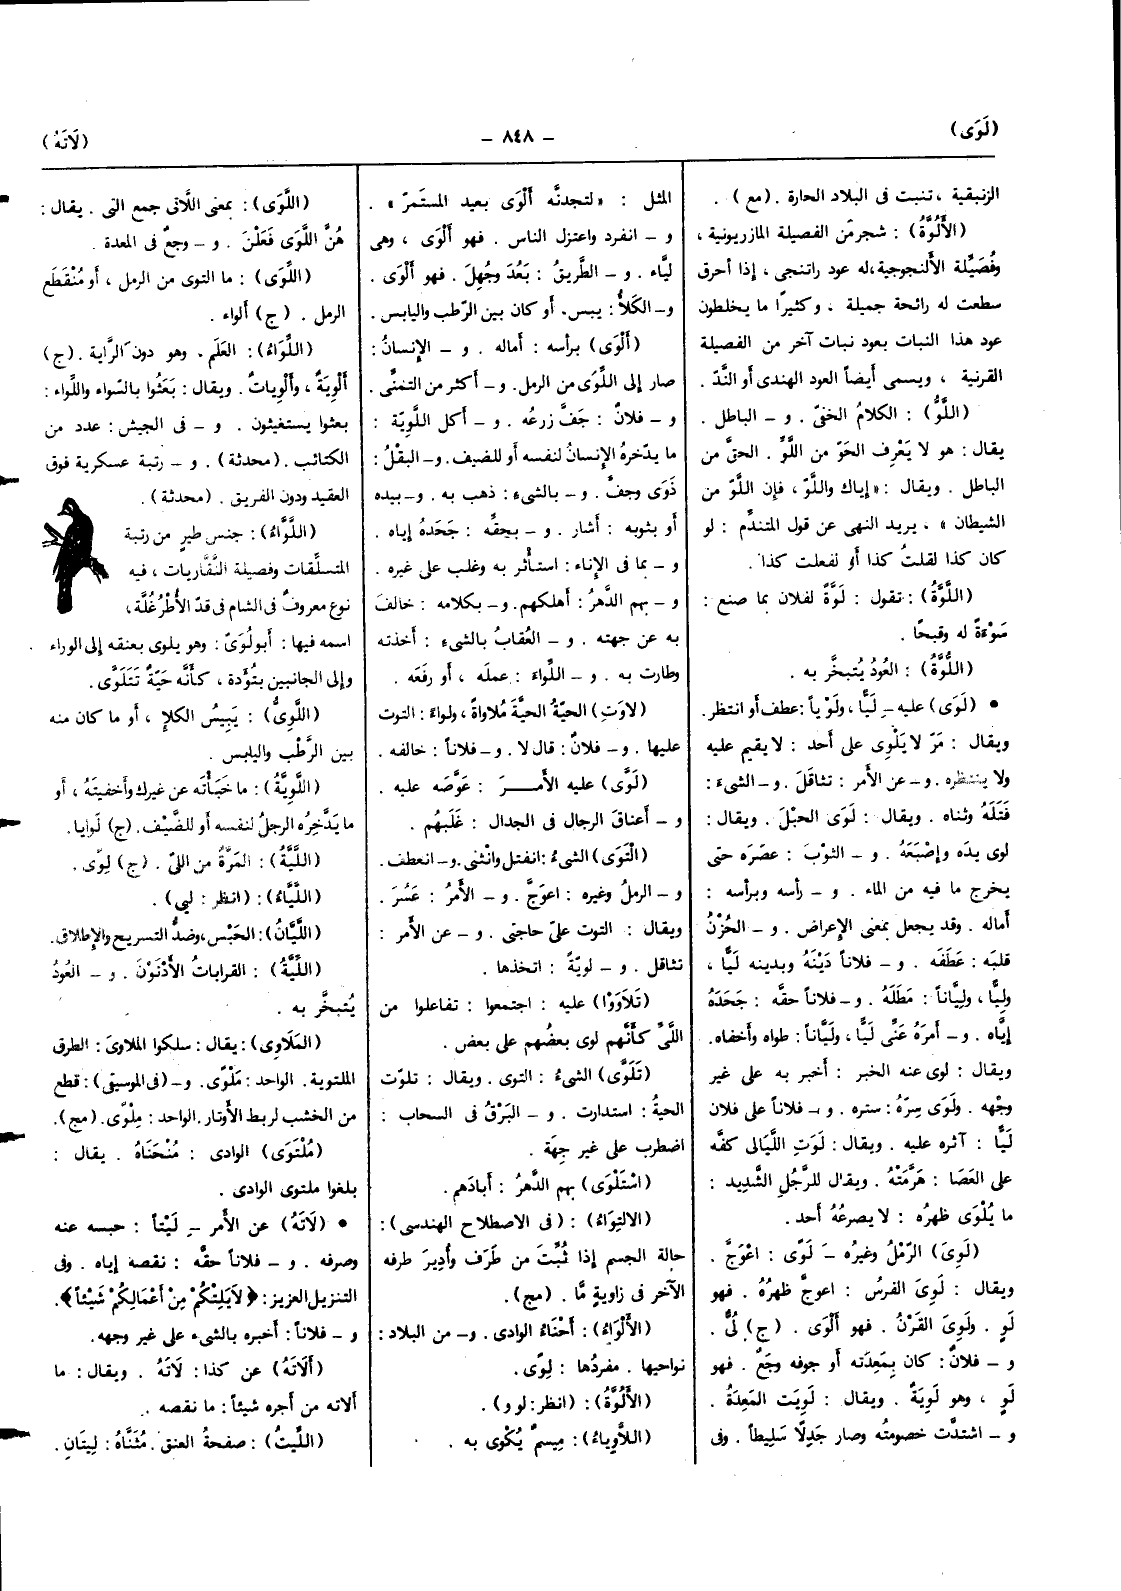 (لَوَى)
— ٨٤٨ —
(لَاتَهُ)
الزنبقية ، تنبت فى البلاد الحارة . (مع) .
(الأَلُوَّةُ) : شجر من الفصيلة المازريونية ،
وفُصَيِّلة الأَلنجوجية، له عود راتنجى ، إذا أحرق
سطعت له رائحة جميلة ، وكثيرًا ما يخلطون
عود هذا النبات بعود نبات آخر من الفصيلة
القرنية ، ويسمى أيضاً العود الهندى أو النَّدّ .
(اللَّوُّ) : الكلامُ الخفىّ . و – الباطل .
يقال : هو لا يَعْرِف الحَوّ من اللَّوِّ . الحقَّ من
الباطل . ويقال : «إياك واللَّوّ ، فإن اللَّوّ من
الشيطان » ، يريد النهى عن قول المتندِّم : لو
كان كذا لقلتُ كذا أو لفعلت كذا .
(اللَّوَّةُ) : تقول : لَوَّةً لفلان بما صنع :
سَوْءَةً له وقبحًا .
(اللُّوَّةُ) : العُودُ يُتبخَّر به .
• (لَوَى) عليه – لَيًّا ، ولَوْياً : عطف أو انتظر .
ويقال : مَرّ لا يَلْوِى على أحد : لا يقيم عليه
ولا ينتظره . و – عن الأمر : تثاقَلَ . و – الشىءَ :
فَتَلَهُ وثناه . ويقال : لَوَى الحبْلَ . ويقال :
لوى يدَه وإصْبَعَهُ . و – الثوْبَ : عصَرَه حتى
يخرج ما فيه من الماء . و – رأسه وبرأسه :
أماله . وقد يجعل بمعنى الإعراض . و – الحُزْنُ
قلبَه : عَطَفَه . و – فلاناً دَيْنَهُ وبدينه لَيًّا ،
ولِيًّا ، ولِيَّاناً : مَطَلَهُ . و – فلاناً حقَّه : جَحَدَهُ
إيَّاه . و – أمرَهُ عَنِّى لَيًّا ، ولَيَّاناً : طواه وأخفاه .
ويقال : لوى عنه الخبر : أخبر به على غير
وجْهه . ولَوَى سِرَّهُ : ستره . و – فلاناً على فلان
لَيًّا : آثره عليه . ويقال : لَوَتِ اللَّيَالى كفَّه
على العَصَا : هَرَّمَتْهُ . ويقال للرَّجُلِ الشَّدِيد :
ما يُلْوَى ظهرُه : لا يصرعُهُ أحد .
(لَوِىَ) الرّمْلُ وغيرُه – لَوًى : اعْوَجَّ .
ويقال : لَوِىَ الفرسُ : اعوجّ ظهرُهُ . فهو
لَوٍ . ولَوِىَ القَرْنُ . فهو أَلْوَى . (ج) لُىٌّ .
و – فلانٌ : كان بِمَعِدَته أو جوفه وجَعٌ . فهو
لَوٍ ، وهو لَوِيَةٌ . ويقال : لَوِيَت المَعِدَةُ .
و – اشتدَّت خصومتُه وصار جَدِلًا سَلِيطاً . وفى
المثل : «لتجدنَّه أَلْوَى بعيد المستَمرّ » .
و – انفرد واعتزل الناس . فهو أَلْوَى ، وهى
ليَّاء . و – الطَّريقُ : بَعُدَ وجُهِلَ . فهو أَلْوَى .
و – الكَلَأُ : يبس. أو كان بين الرَّطب واليابس .
(أَلْوَى) برأسه : أماله . و – الإنسانُ :
صار إلى اللِّوَى من الرمل . و – أكثر من التمَنِّى .
و – فلانٌ : جَفَّ زرعُه . و – أكل اللَّوِيّة :
ما يدّخرهُ الإنسانُ لنفسه أو للضيف . و – البقْلُ :
ذَوَى وجفّ . و – بالشىءِ : ذهب به . و – بيده
أو بثوبه : أشار . و – بحقِّه : جَحَدَهُ إياه .
و – بما فى الإناء : استأثر به وغلب على غيره .
و – بهم الدَّهرُ : أهلكهم . و – بكلامه : خالفَ
به عن جهته . و – العُقابُ بالشىءِ : أخذته
وطارت به . و – اللِّواءَ : عمله ، أو رفَعَه .
(لاوَتِ) الحيّةُ الحيَّةَ مُلاواةً ، ولواءً : التوت
عليها . و – فلانٌ : قال لا . و – فلاناً : خالفه .
(لَوَّى) عليه الأمـــرَ : عَوَّصَه عليه .
و – أعناقَ الرجال فى الجدال : غَلَبهُم .
(الْتَوَى) الشىءُ : انفتل وانْثنى . و – انعطف .
و – الرملُ وغيره : اعوَجَّ . و – الأمرُ : عَسُرَ .
ويقال : التوت علىّ حاجتى . و – عن الأمر :
تثاقل . و – لويّةً : اتخذها .
(تَلَاوَوْا) عليه : اجتمعوا : تفاعلوا من
اللَّىِّ كأنَّهم لوى بعضُهم على بعض .
(تَلَوَّى) الشىءُ : التوى . ويقال : تلوّت
الحيةُ : استدارت . و – البَرْقُ فى السحاب :
اضطرب على غير جِهَة .
(اسْتَلْوَى) بهم الدَّهرُ : أبادَهم .
(الالتِوَاءُ) : (فى الاصطلاح الهندسى) :
حالة الجسم إذا ثُبِّتَ من طَرَف وأُدِيرَ طرفه
الآخر فى زاويةٍ مَّا . (مج) .
(الأَلْوَاءُ) : أَحْنَاءُ الوادى . و – من البلاد :
نواحيها . مفردُها : لِوًى .
(الأَلُوَّةُ) : (انظر : ل و و) .
(اللَّاوِيَاءُ) : مِيسمٌ يُكْوى به .
(اللَّوَى) : بمعنى اللَّاتى جمع التى . يقال :
هُنَّ اللَّوَى فَعَلْنَ . و – وجعٌ فى المعدة .
(اللِّوَى) : ما التوى من الرمل ، أو مُنْقَطَع
الرمل . (ج) ألواء .
(اللِّوَاءُ) : العَلَم . وهو دون الرَّاية . (ج)
أَلْوِيَةٌ ، وأَلْوِياتٌ . ويقال : بَعَثُوا بالسّواء واللّواء :
بعثوا يستغيثون . و – فى الجيش : عدد من
الكتائب . (محدثة) . و – رتبة عسكرية فوق
العقيد ودون الفريق . (محدثة) .
(اللَّوَّاءُ) : جنس طيرٍ من رتبة
المتسلِّقات وفصيلة النَّقَّاريات ، فيه
نوع معروفٌ فى الشام فى قدّ الأُطْرُغُلَّة ،
اسمه فيها : أبو لُوَىّ : وهو يلوى بعنقه إلى الوراء
وإلى الجانبين بتُؤَدة ، كأنَّه حَيّةٌ تَتَلَوَّى .
(اللَّوِىُّ) : يَبِيسُ الكلإِ ، أو ما كان منه
بين الرَّطْب واليابس .
(اللَّوِيَّةُ) : ما خَبَأْتَه عن غيرك وأخفيتَهُ ، أو
ما يَدَّخِرُه الرجلُ لنفسه أو للضَّيْف . (ج) لَوايا .
(اللَّيَّةُ) : المَرَّةُ من اللىّ . (ج) لِوًى .
(اللَّيَّاءُ) : (انظر : ليى) .
(اللَّيَّانُ) : الحَبْس ، وضدُّ التسريح والإطلاق .
(اللِّيَّةُ) : القرابات الأَدْنَوْنَ . و – العُودُ
يُتبخَّر به .
(المَلَاوِى) : يقال : سلكوا الملاوىَ : الطرق
الملتوية . الواحد : مَلْوًى . و – (فى الموسيقى) : قطع
من الخشب لربط الأوتار . الواحد : مِلْوًى . (مج) .
(مُلْتَوَى) الوادى : مُنْحَنَاهُ . يقال :
بلغوا ملتوى الوادى .
• (لَاتَهُ) عن الأمر – لَيْتاً : حبسه عنه
وصرفه . و – فلاناً حقَّه : نقصه إياه . وفى
التنزيل العزيز : ﴿لَايَلِتْكُمْ مِنْ أَعْمَالِكُمْ شَيْئاً﴾ .
و – فلاناً : أخبره بالشىءِ على غير وجهه .
(أَلَاتَهُ) عن كذا : لَاتَهُ . ويقال : ما
ألاته من أجره شيئاً : ما نقصه .
(اللِّيتُ) : صفحةُ العنق . مُثَنَّاهُ : لِيتَانِ .